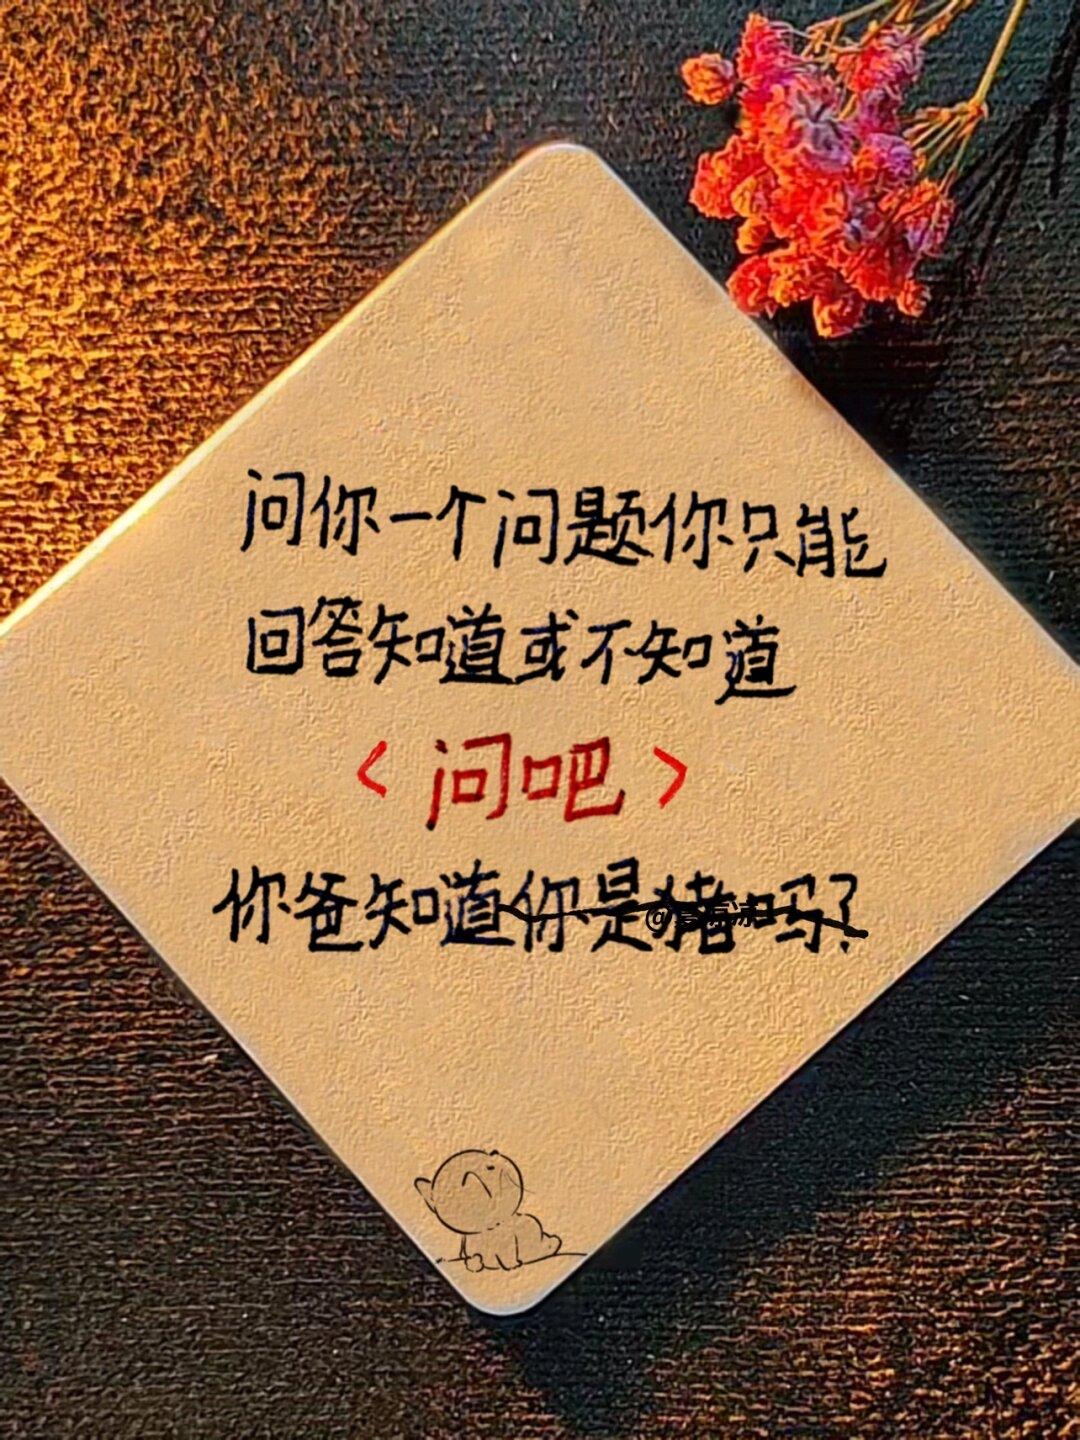 问你一个问题你只能
回答知道或不知道
<问吧>
你爸知道你是猪吗?